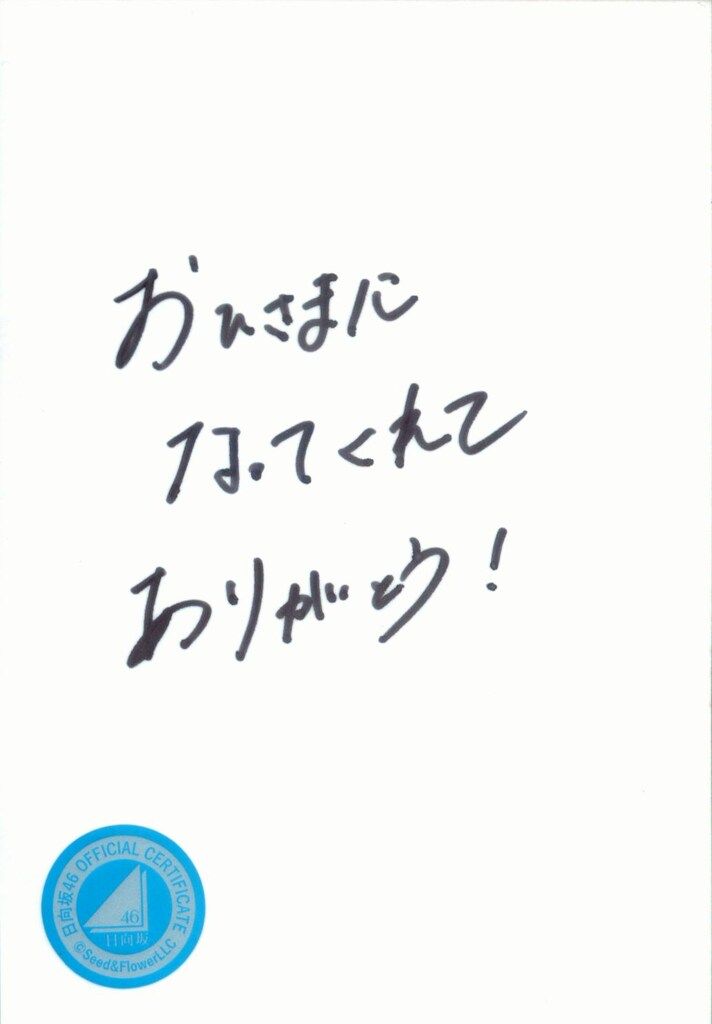 おひさまに
なってくれて
ありがとう!
日向坂46 OFFICIAL CERTIFICATE
46
日向坂
©Seed&FlowerLLC